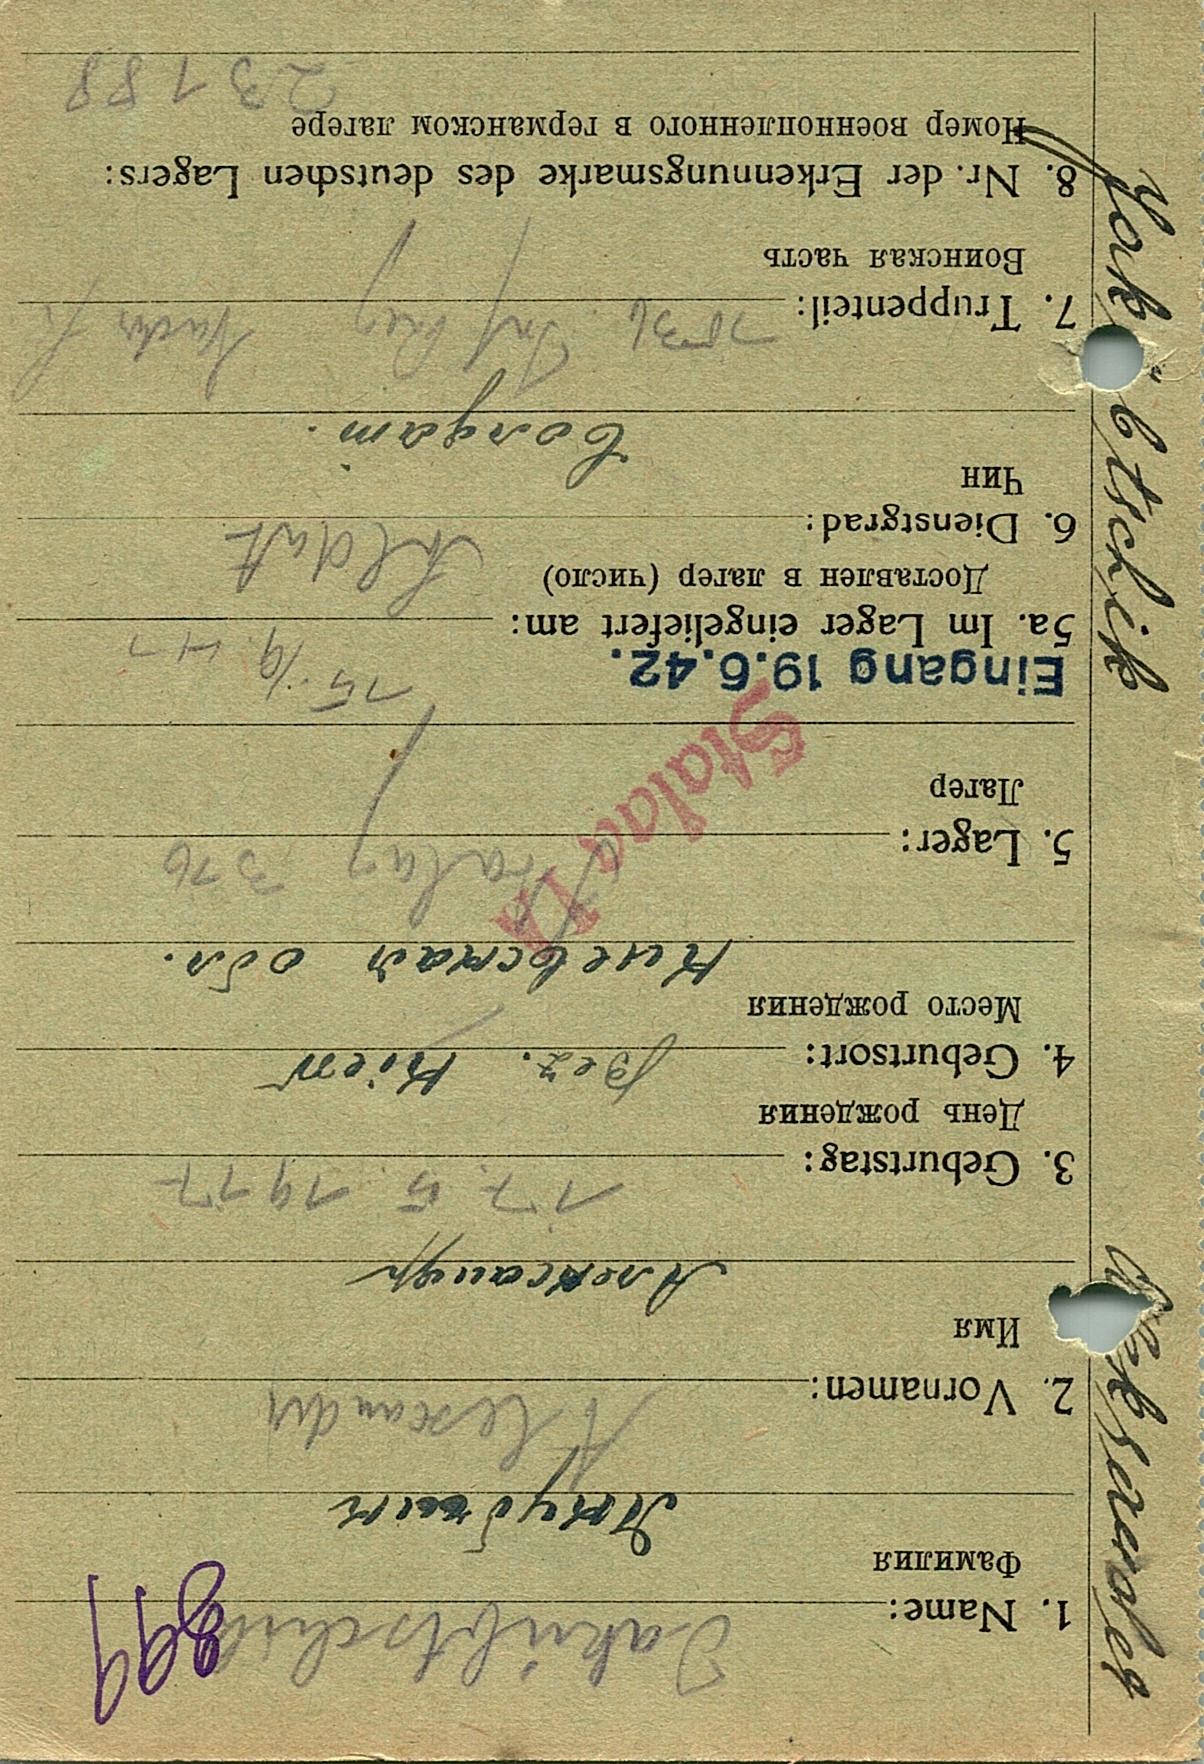 Jakubtschik
Aleksander
1. Name: Jakubtschik
899
Фамилия
Якубчик
2. Vornamen: Alexander
Имя
Александр
3. Geburtstag: 17. 5. 1917
День рождения
4. Geburtsort: Bez. Kiew
Место рождения
Киевская обл.
5. Lager: Stalag 376
Лагер
Stalag IA
Eingang 19.6.42.
5a. Im Lager eingeliefert am:
Доставлен в лагер (число)
6. Dienstgrad: Soldat
Чин
Солдат.
7. Truppenteil: Inf Reg
Воинская часть
8. Nr. der Erkennungsmarke des deutschen Lagers:
Номер военнопленного в германском лагере
23188